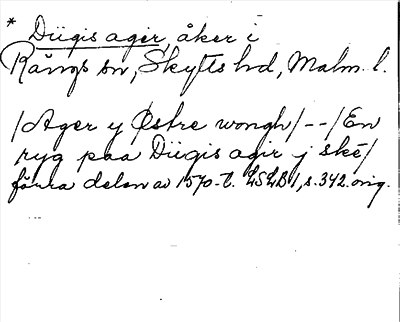 * Diigis ager, åker i
Rängs sn, Skytts hd, Malm. l.
/Ager y Østre wongh/--/En
ryg paa Diigis agir j ské/
förra delen av 1570-t. LSLB 1, s. 342. orig.